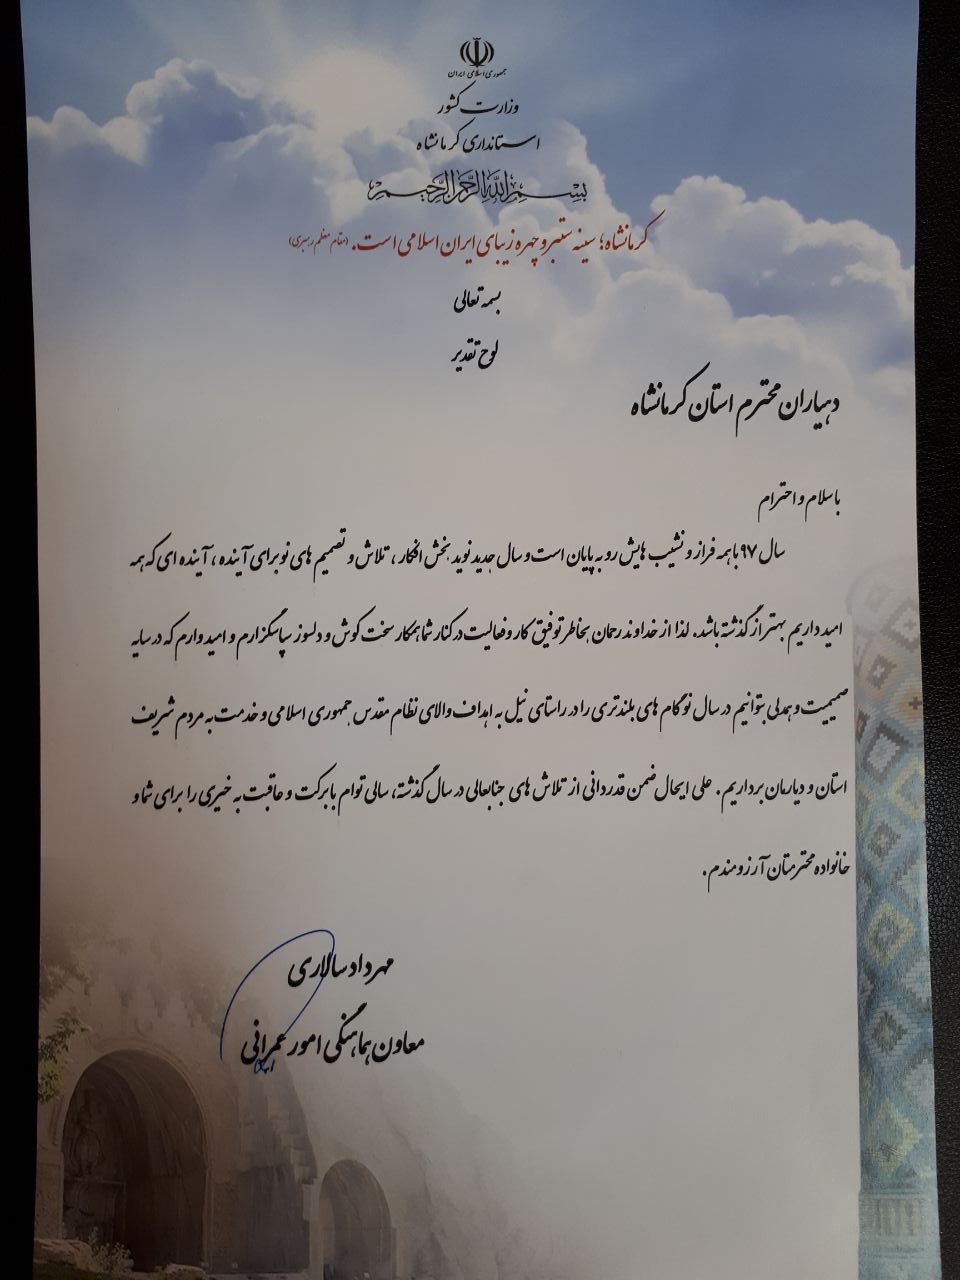 جمهوری اسلامی ایران
وزارت کشور
استانداری کرمانشاه
بسم الله الرحمن الرحیم
کرمانشاه؛ سینه ستبر و چهره زیبای ایران اسلامی است. (مقام معظم رهبری)
بسمه تعالی
لوح تقدیر
دهیاران محترم استان کرمانشاه
با سلام و احترام
سال ۹۷ با همه فراز و نشیب هایش رو به پایان است و سال جدید نوید بخش افکار ، تلاش و تصمیم های نو برای آینده ، آینده ای که همه
امید داریم بهتر از گذشته باشد. لذا از خداوند رحمان بخاطر توفیق کار و فعالیت در کنار شما همکار سخت کوش و دلسوز سپاسگزارم و امیدوارم که در سایه
صمیمیت و همدلی بتوانیم در سال نو گام های بلندتری را در راستای نیل به اهداف والای نظام مقدس جمهوری اسلامی و خدمت به مردم شریف
استان و دیارمان برداریم. علی ایحال ضمن قدردانی از تلاش های جنابعالی در سال گذشته، سالی توام با برکت و عاقبت به خیری را برای شما و
خانواده محترمتان آرزومندم.
مهرداد سالاری
معاون هماهنگی امور عمرانی